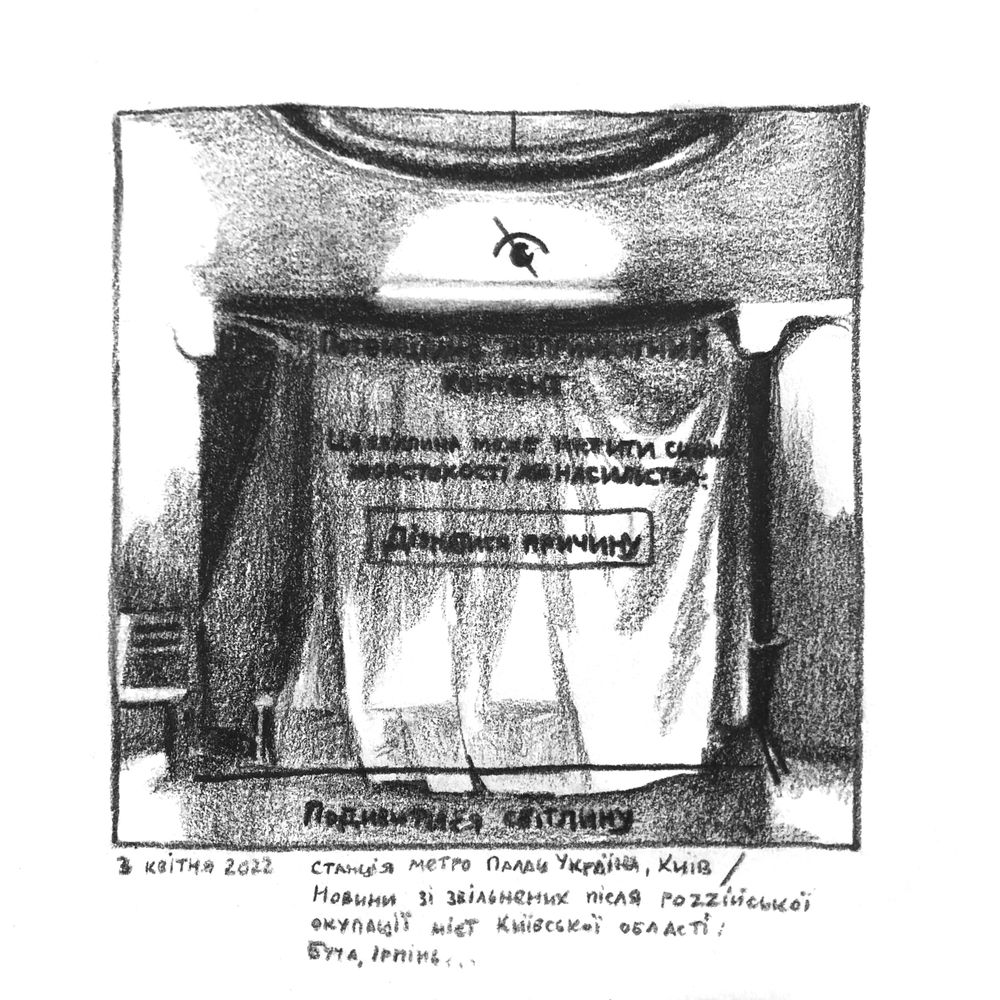 Потенційно неприйнятний
контент
Ця світлина може містити сцени
жорстокості або насильства.
Дізнатися причину
Подивитися світлину
3 квітня 2022 Станція метро Палац Україна, Київ /
Новини зі звільнених після роzzійської
окупації міст Київської області:
Буча, Ірпінь...